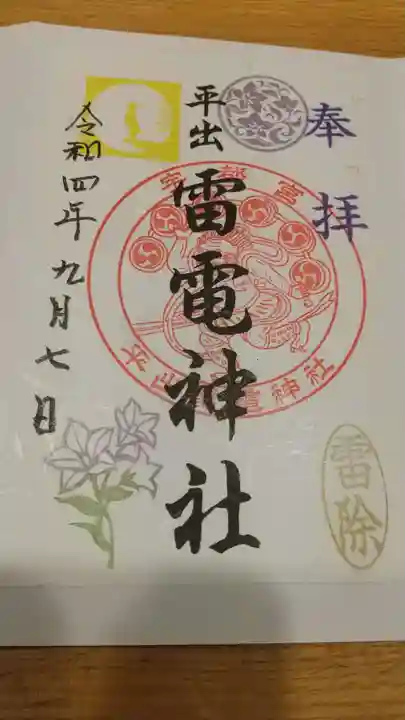 奉拝
平出
雷電神社
令和四年九月七日
宇都宮
雷電神社
雷除